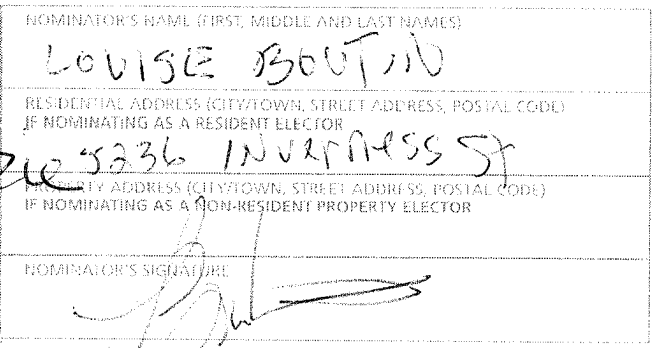 NOMINATOR'S NAME (FIRST, MIDDLE AND LAST NAMES)
LOUISE BOUTIN
RESIDENTIAL ADDRESS (CITY/TOWN, STREET ADDRESS, POSTAL CODE)
IF NOMINATING AS A RESIDENT ELECTOR
5236 INVERNESS St
PROPERTY ADDRESS (CITY/TOWN, STREET ADDRESS, POSTAL CODE)
IF NOMINATING AS A NON-RESIDENT PROPERTY ELECTOR
NOMINATOR'S SIGNATURE